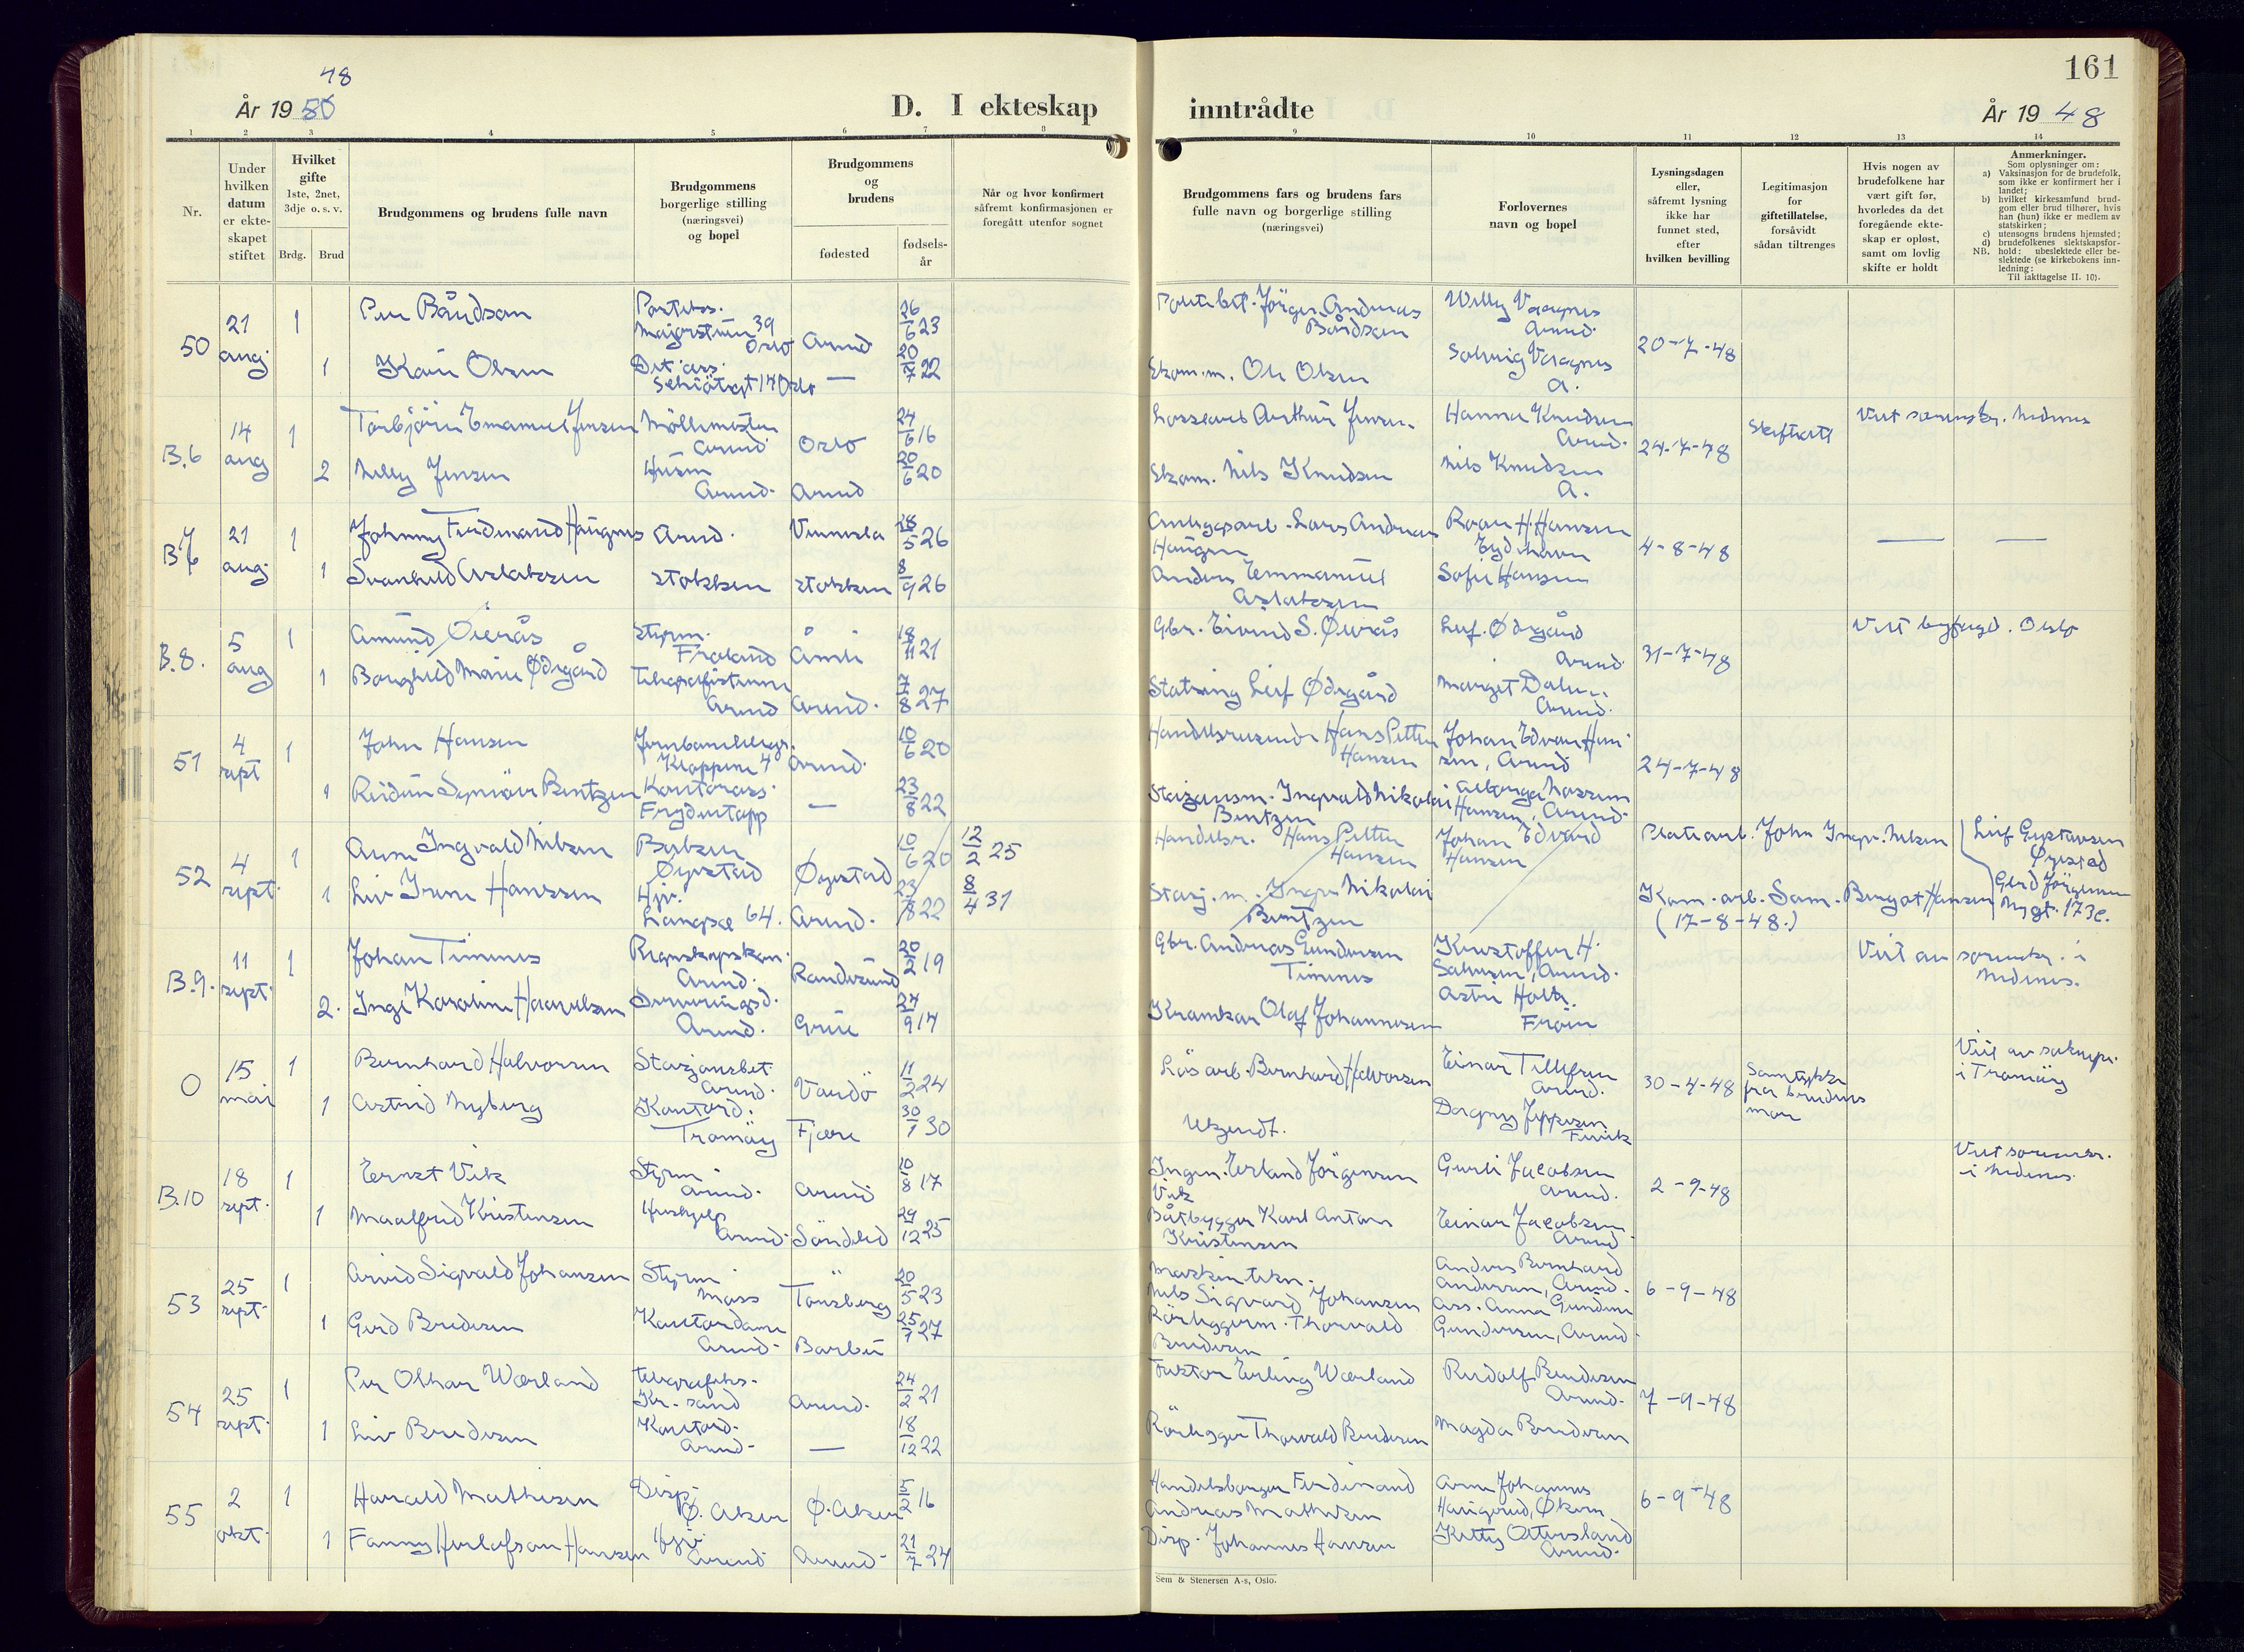 48
År 19 50
D. I ekteskap
inntrådte
161
År 19 48
1 2 3 4 5 6 7 8 9 10 11 12 13 14
Nr.
Under
hvilken
datum
er ekte-
skapet
stiftet
Hvilket
gifte
1ste, 2net,
3dje o. s. v.
Brdg. Brud
Brudgommens og brudens fulle navn
Brudgommens
borgerlige stilling
(næringsvei)
og bopel
Brudgommens
og
brudens
fødested
fødsels-
år
Når og hvor konfirmert
såfremt konfirmasjonen er
foregått utenfor sognet
Brudgommens fars og brudens fars
fulle navn og borgerlige stilling
(næringsvei)
Forlovernes
navn og bopel
Lysningsdagen
eller,
såfremt lysning
ikke har
funnet sted,
efter
hvilken bevilling
Legitimasjon
for
giftetillatelse,
forsåvidt
sådan tiltrenges
Hvis nogen av
brudefolkene har
vært gift før,
hvorledes da det
foregående ekte-
skap er opløst,
samt om lovlig
skifte er holdt
Anmerkninger.
Som oplysninger om:
a) Vaksinasjon for de brudefolk,
som ikke er konfirmert her i
landet;
b) hvilket kirkesamfund brud-
gom eller brud tilhører, hvis
han (hun) ikke er medlem av
statskirken;
c) utensogns brudens hjemsted;
d) brudefolkenes slektskapsfor-
NB. hold: ubeslektede eller be-
slektede (se kirkebokens inn-
ledning:
Til iakttagelse II. 10).
50 21 aug 1 Per Bårdsen Majorstuen 39 Oslo Arend 26/6 23 Jörgen Andreas Bårdsen Willy Vaagnes Arend. 20-7-48
1 Kari Olsen 14 Oslo — 20/7 22 Ekom.m. Ole Olsen Solveig Vaagnes A.
B.6 14 aug 1 Torbjörn Emanuel Jensen Möllemester Arend Oslo 24/6 16 Arthur Jensen Hanna Knudsen Arend. 24-7-48 Skifteatt Viet sorenskr. Nedenes
2 Nelly Jensen Husm Arend. Arend 20/6 20 Ekom. Nils Knudsen Nils Knudsen A.
B.7 21 aug 1 Johnny Ferdinand Haugnes Arend. Vennesla 18/5 26 Anleggsarb. Lars Andreas Haugen Roar H. Hansen Eydehavn 4-8-48 — —
1 Svanhild Aslaksen Stokken Stokken 8/9 26 Anders Emmanuel Aslaksen Sofie Hansen
B.8. 5 aug 1 Amund Øierås Styrm. Froland Åmli 18/11 21 Gbr. Eivind S. Øierås Leif Ødegård Arend. 31-7-48 Viet byfogd. Oslo
1 Borghild Marie Ødegård Telegrafistinne Arend Arend. 7/8 27 Leif Ødegård Margit Dalen Arend.
51 4 sept 1 John Hansen Kloppene 4 Arend. 10/6 20 Handelsreisende Hans Petter Hansen Johan Edvard Hansen, Arend 24-7-48
1 Reidun Synnöve Bentzen Kontorass. Frydentopp — 23/8 22 Ingvald Nikolai Bentzen Hansen, Arend.
52 4 sept. 1 Arne Ingvald Nilsen Øyestad Øyestad 10/6 20 12/2 25 Handelsr. Hans Petter Hansen Johan Edvard Hansen Platearb. John Ingv. Nilsen Leif Gustavsen Øyestad
1 Liv Irene Hanssen Hjv. Langsæ 64. Arend. 23/8 22 8/4 31 Ingv. Nikolai Bentzen Kom.arb. Sam. Bergst Hansen Gerd Jörgensen Nygt. 173c.
(17-8-48.)
B.9. 11 sept. 1 Johan Timnes Regnskapskon. Arend. Randesund 20/2 19 Gbr. Andreas Gundersen Timnes Kristoffer H. Salvesen, Arend. Viet av sorenskr. i Nedenes.
2. Inga Karoline Arend. Grue 24/9 14 Olaf Johannesen Astri Holte.
0 15 mai 1 Bernhard Halvorsen Stasjonsbet. Arend. Vardö 11/2 24 Lösarb. Bernhard Halvorsen Einar Tellefsen Arend. 30-4-48 Samtykke fra brudens mor Viet av soknepr. i Tromöy
1 Astrid Nyberg Kontord. Tromöy Fjære 30/1 30 Ukjendt. Dagny Jeppesen Fevik
B.10 18 sept. 1 Ernst Vik Styrm Arend. Arend 10/8 17 Ingen. Erland Jörgensen Vik Gurli Jacobsen Arend. 2-9-48 Viet sorenskr. i Nedenes.
1 Maalfrid Kristensen Hushjelp Arend. Söndeled 29/12 25 Båtbygger Karl Anton Kristensen Einar Jacobsen Arend.
53 25 sept. 1 Arvid Sigvald Johansen Styrm Moss Tönsberg 20/5 23 Maskintekn. Nils Sigvard Johansen Anders Bernhard Andersen, Arend. 6-9-48
1 Gerd Bendixen Kontordame Arend. Barbu 25/7 27 Rörleggerm. Thorvald Bendixen Ass. Anna Gundine Gundersen, Arend.
54 25 sept. 1 Per Othar Wærland Kr.sand Arend. 24/2 21 Faktor Erling Wærland Rudolf Bendixen Arend. 7-9-48
1 Liv Bendixen Kontord. Arend. — 18/12 22 Rörlegger Thorvald Bendixen Magda Bendixen
55 2 okt. 1 Harald Mathisen Disp. Ø. Aker Ø. Aker 5/2 16 Handelsborger Ferdinand Andreas Mathisen Arne Johannes 6-9-48
1 Fanny Herlofson Hansen Hjv. Arend Arend. 21/7 24 Disp. Johannes Hansen Kitty Arend.
Sem & Stenersen A-s, Oslo.